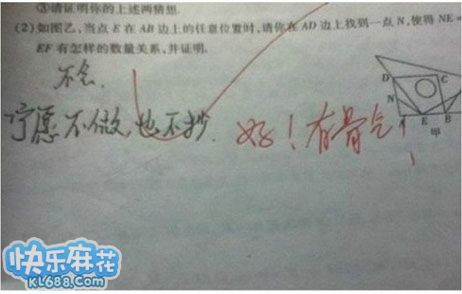 ③请证明你的上述两猜想.
(2)如图乙,当点 E 在 AB 边上的任意位置时,请你在 AD 边上找到一点 N,使得 NE=
EF 有怎样的数量关系,并证明.
不会.
宁愿不做,也不抄. 好!有骨气!
D C
N
A E B
甲
快乐麻花
KL688.Com